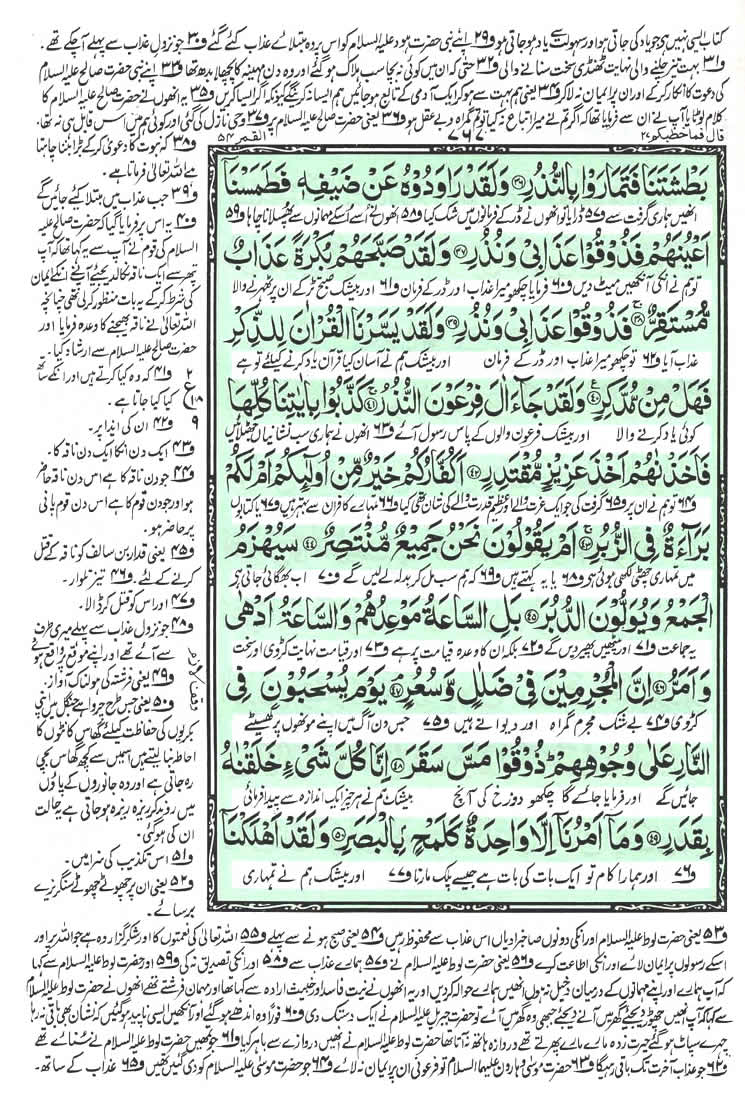 کتاب ایسی نہیں ہوجویاد کی جاتی ہو اور سہولت سے یاد ہوجاتی ہو و۲۹ اپنے نبی حضرت ہود علیہ السلام کو اس پر وہ مبتلائے عذاب کئے گئے و۳۰ جو نزول عذاب سے پہلے آچکے تھے۔
و۳۱ بہت تیز چلنے والی نہایت ٹھنڈی سخت سنانے والی و۳۲ حتی کہ ان میں کوئی نہ بچا سب ہلاک ہوگئے اور وہ دن مہینہ کا پچھلا بدھ تھا و۳۳ اپنے نبی حضرت صالح علیہ السلام
کی دعوت کا انکار کرکے اور ان پر ایمان نہ لاکر و۳۴ یعنی ہم بہت سے ہوکر ایک آدمی کے تابع ہوجائیں ہم ایسا نہ کریں گے کیونکہ اگر ایسا کریں و۳۵ یہ انھوں نے حضرت صالح علیہ السلام کا
کلام لوٹایا آپ نے ان سے فرمایا تھا کہ اگر تم نے میرا اتباع نہ کیا تو تم گمراہ و بے عقل ہو و۳۶ یعنی حضرت صالح علیہ السلام پر و۳۷ وحی نازل کی گئی اور کوئی ہم میں اس قابل ہی نہ تھا۔
قال فما خطبکم ۲۷ ۷۶۷ القمر ۵۴
و۳۸ کہ نبوت کا دعویٰ کرکے بڑا بننا چاہتا
ہے اللہ تعالیٰ فرماتا ہے۔
و۳۹ جب عذاب میں مبتلا کیے جائیں گے
و۴۰ یہ اس پر فرمایا گیا کہ حضرت صالح علیہ
السلام کی قوم نے آپ سے یہ کہا تھا کہ آپ
پتھر سے ایک ناقہ نکال دیجیے آپ نے انکے ایمان
کی شرط کرکے یہ بات منظور کرلی تھی چنانچہ
اللہ تعالیٰ نے ناقہ بھیجنے کا وعدہ فرمایا اور
حضرت صالح علیہ السلام سے ارشاد کیا۔
و۴۱ کہ وہ کیا کرتے ہیں اور انکے ساتھ
کیا کیا جاتا ہے۔
و۴۲ ان کی ایذا پر۔
و۴۳ ایک دن انکا ایک دن ناقہ کا۔
و۴۴ جو دن ناقہ کا ہے اس دن ناقہ حاضر
ہو اور جو دن قوم کا ہے اس دن قوم پانی
پر حاضر ہو۔
و۴۵ یعنی قدار بن سالف کو ناقہ کے قتل
کرنے کے لئے۔ و۴۶ تیز تلوار۔
و۴۷ اور اس کو قتل کر ڈالا۔
و۴۸ جو نزول عذاب سے پہلے میری طرف
سے آئے تھے اور اپنے موقع پر واقع ہوئے
و۴۹ یعنی فرشتہ کی ہولناک آواز۔
و۵۰ یعنی جس طرح چرواہے جنگل میں اپنی
بکریوں کی حفاظت کیلئے گھاس کانٹوں کا
احاطہ بنا لیتے ہیں اسمیں سے کچھ گھاس بچی
رہ جاتی ہے اور وہ جانوروں کے پاؤں
میں روند کر ریزہ ریزہ ہوجاتی ہے یہ حالت
ان کی ہوگئی۔
و۵۱ اس تکذیب کی سزا میں۔
و۵۲ یعنی ان پر چھوٹے چھوٹے سنگریزے
برسائے۔
بَطْشَتَنَا فَتَمَارَوْا بِالنُّذُرِ ۝۳۶ وَلَقَدْ رَاوَدُوْهُ عَنْ ضَيْفِهٖ فَطَمَسْنَآ
انھیں ہماری گرفت سے و۵۷ ڈرایا تو انھوں نے ڈر کے فرمانوں میں شک کیا و۵۸ انھوں نے اسے اسکے مہمانوں سے پھسلانا چاہا و۵۹
اَعْيُنَهُمْ فَذُوْقُوْا عَذَابِيْ وَنُذُرِ ۝۳۷ وَلَقَدْ صَبَّحَهُمْ بُكْرَةً عَذَابٌ
تو ہم نے انکی آنکھیں میٹ دیں و۶۰ فرمایا چکھو میرا عذاب اور ڈر کے فرمان و۶۱ اور بیشک صبح تڑکے ان پر ٹھہرنے والا
مُّسْتَقِرٌّ ۝۳۸ فَذُوْقُوْا عَذَابِيْ وَنُذُرِ ۝۳۹ وَلَقَدْ يَسَّرْنَا الْقُرْاٰنَ لِلذِّكْرِ
عذاب آیا و۶۲ تو چکھو میرا عذاب اور ڈر کے فرمان اور بیشک ہم نے آسان کیا قرآن یاد کرنے کیلئے تو ہے
فَهَلْ مِنْ مُّدَّكِرٍ ۝۴۰ وَلَقَدْ جَآءَ اٰلَ فِرْعَوْنَ النُّذُرُ ۝۴۱ كَذَّبُوْا بِاٰيٰتِنَا كُلِّهَا
کوئی یاد کرنے والا اور بیشک فرعون والوں کے پاس رسول آئے و۶۳ انھوں نے ہماری سب نشانیاں جھٹلائیں
فَاَخَذْنٰهُمْ اَخْذَ عَزِيْزٍ مُّقْتَدِرٍ ۝۴۲ اَكُفَّارُكُمْ خَيْرٌ مِّنْ اُولٰٓئِكُمْ اَمْ لَكُمْ
و۶۴ تو ہم نے ان پر و۶۵ گرفت کی جو ایک عزت والے اور عظیم قدرت والے کی شان تھی کیا و۶۶ تمہارے کافر ان سے بہتر ہیں و۶۷ یا کتابوں
بَرَآءَةٌ فِي الزُّبُرِ ۝۴۳ اَمْ يَقُوْلُوْنَ نَحْنُ جَمِيْعٌ مُّنْتَصِرٌ ۝۴۴ سَيُهْزَمُ
میں تمہاری چھٹی لکھی ہوئی ہے و۶۸ یا یہ کہتے ہیں و۶۹ کہ ہم سب مل کر بدلہ لے لیں گے و۷۰ اب بھگائی جاتی ہے
الْجَمْعُ وَيُوَلُّوْنَ الدُّبُرَ ۝۴۵ بَلِ السَّاعَةُ مَوْعِدُهُمْ وَالسَّاعَةُ اَدْهٰى
یہ جماعت و۷۱ اور پیٹھیں پھیر دیں گے و۷۲ بلکہ ان کا وعدہ قیامت پر ہے و۷۳ اور قیامت نہایت کڑوی اور سخت
وَاَمَرُّ ۝۴۶ اِنَّ الْمُجْرِمِيْنَ فِيْ ضَلٰلٍ وَّسُعُرٍ ۝۴۷ يَوْمَ يُسْحَبُوْنَ فِي
کڑوی و۷۴ بے شک مجرم گمراہ اور دیوانے ہیں و۷۵ جس دن آگ میں اپنے مونھوں پر گھسیٹے
النَّارِ عَلٰى وُجُوْهِهِمْ ذُوْقُوْا مَسَّ سَقَرَ ۝۴۸ اِنَّا كُلَّ شَيْءٍ خَلَقْنٰهُ
جائیں گے اور فرمایا جائے گا چکھو دوزخ کی آنچ بیشک ہم نے ہر چیز ایک اندازہ سے پیدا فرمائی
بِقَدَرٍ ۝۴۹ وَمَآ اَمْرُنَآ اِلَّا وَاحِدَةٌ كَلَمْحٍۭ بِالْبَصَرِ ۝۵۰ وَلَقَدْ اَهْلَكْنَآ
و۷۶ اور ہمارا کام تو ایک بات کی بات ہے جیسے پلک مارنا و۷۷ اور بیشک ہم نے تمہاری
و۵۳ یعنی حضرت لوط علیہ السلام اور انکی دونوں صاحبزادیاں اس عذاب سے محفوظ رہیں و۵۴ یعنی صبح ہونے سے پہلے و۵۵ اللہ تعالیٰ کی نعمتوں کا اور شکرگزار وہ ہے جو اللہ پر اور
اسکے رسولوں پر ایمان لائے اور انکی اطاعت کرے و۵۶ یعنی حضرت لوط علیہ السلام نے و۵۷ ہمارے عذاب سے و۵۸ اور انکی تصدیق نہ کی و۵۹ اور حضرت لوط علیہ السلام سے کہا
کہ آپ ہمارے اور اپنے مہمانوں کے درمیان دخیل نہ ہوں انھیں ہمارے حوالہ کردیں اور یہ انھوں نے نیت فاسد اور خبیث ارادہ سے کہا تھا اور مہمان فرشتے تھے انھوں نے حضرت لوط علیہ السلام
سے کہا کہ آپ انھیں چھوڑ دیجئے گھر میں آنے دیجئے جبھی وہ گھر میں آئے تو حضرت جبریل علیہ السلام نے ایک دستک دی و۶۰ فوراً وہ اندھے ہوگئے اور آنکھیں ایسی ناپید ہوگئیں کہ نشان بھی باقی نہ رہا
چہرے سپاٹ ہوگئے حیرت زدہ مارے مارے پھرتے تھے دروازہ ہاتھ نہ آتا تھا حضرت لوط علیہ السلام نے انھیں دروازے سے باہر کیا و۶۱ جو تمھیں حضرت لوط علیہ السلام نے سنائے تھے
و۶۲ جو عذاب آخرت تک باقی رہیگا و۶۳ حضرت موسیٰ و ہارون علیہما السلام تو فرعونی ان پر ایمان نہ لائے و۶۴ جو حضرت موسیٰ علیہ السلام کو دی گئیں تھیں و۶۵ عذاب کے ساتھ۔